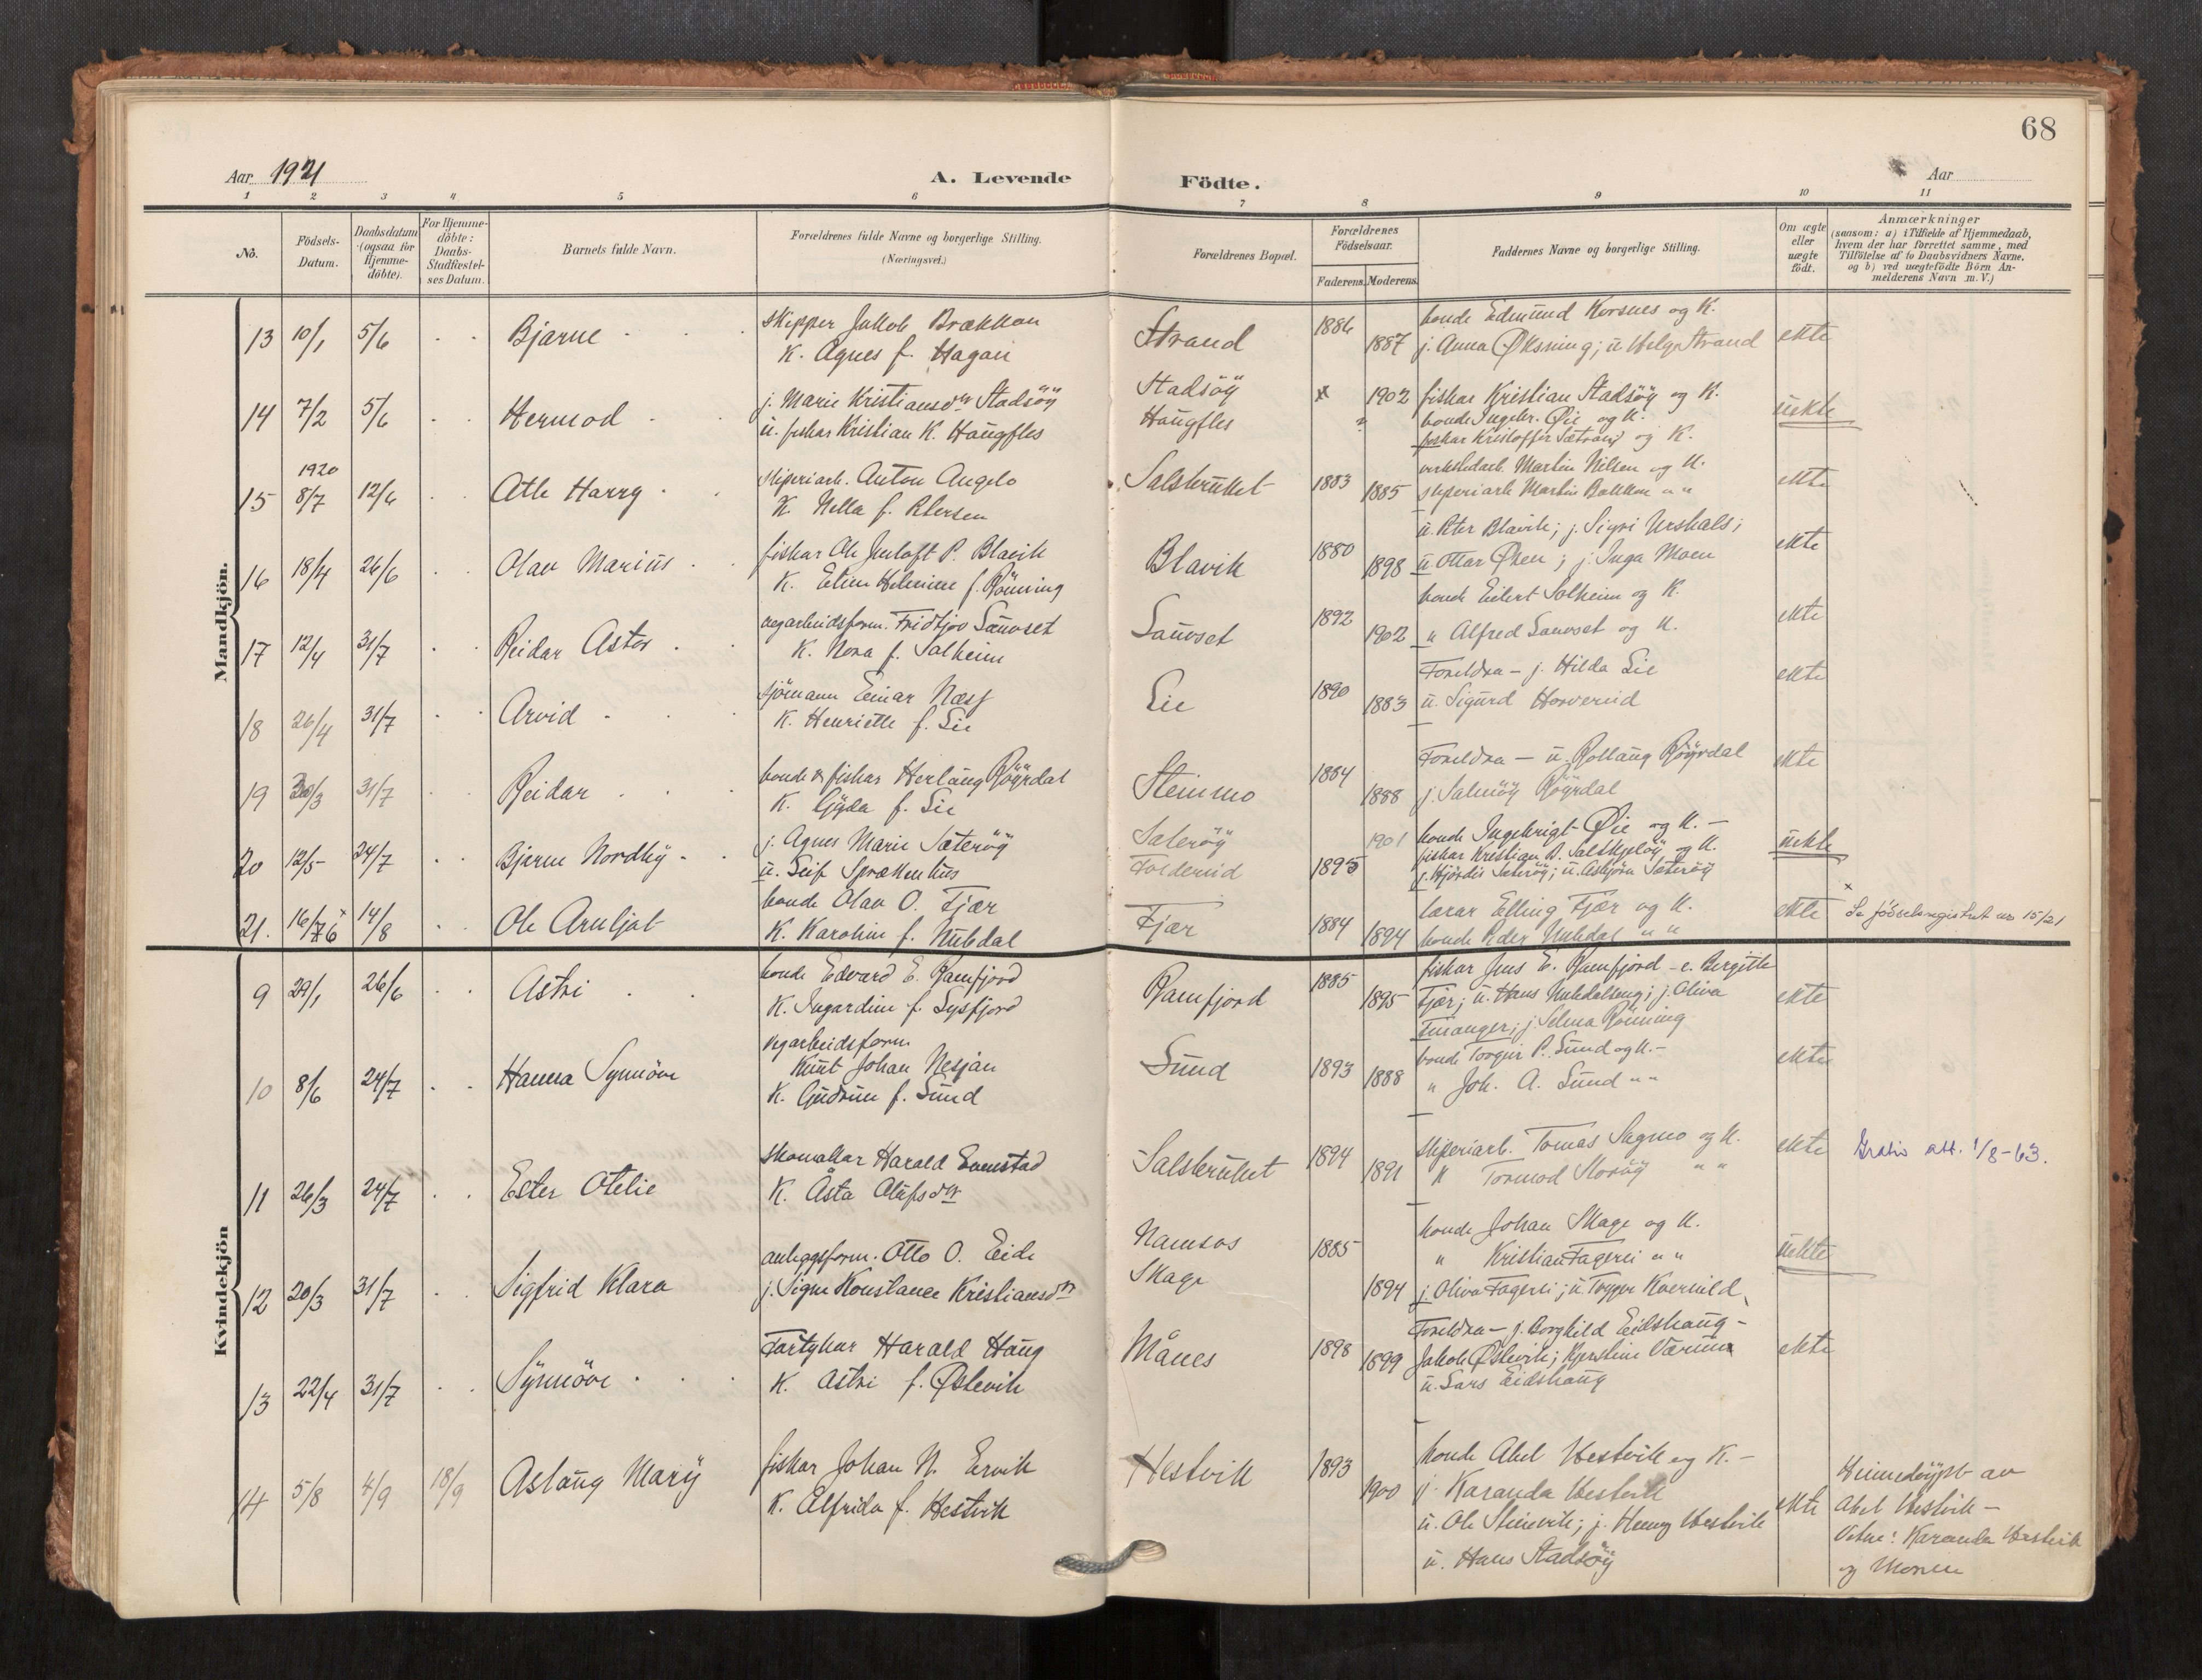 68
Aar 1921
A. Levende Födte.
Aar
1 2 3 4 5 6 7 8 9 10 11
No.
Födsels-
Datum.
Daabsdatum
(ogsaa for
Hjemme-
döbte).
For Hjemme-
döbte:
Daabs-
Stadfæstel-
ses Datum.
Barnets fulde Navn.
Forældrenes fulde Navne og borgerlige Stilling.
(Næringsvei.)
Forældrenes Bopæl.
Forældrenes
Födselsaar.
Faderens. Moderens.
Faddernes Navne og borgerlige Stilling.
Om ægte
eller
uægte
födt.
Anmærkninger
(saasom: a) i Tilfælde af Hjemmedaab,
hvem der har forrettet samme, med
Tilföielse af to Daabsvidners Navne,
og b) ved uægtefödte Börn An-
melderens Navn m. V.)
Mandkjön.
13 10/1 5/6 Bjarne
skipper Jakob Brækkan
K. Agnes f. Hagan
Strand 1886 1887
bonde Edmund Korsnes og K.
j. Anna Øksning; u Helge Strand
ekte
14 7/2 5/6 Hermod
j. Marie Kristiansdtr Stadsöy
u. fiskar Kristian K. Haugfles
Stadsöy
Haugfles
x 1902
fiskar Kristian Stadsöy og K.
bonde Ingebr. Øie og K.
fiskar Kristoffer Sætran og K.
uekte
15 1920 8/7 12/6 Atle Harry
sliperiarb. Anton Angelo
K. Nella f. Petersen
Salsbruket 1883 1885
verkstedarb. Martin Nilsen og K.
sliperiarb Martin Bakken " "
ekte
16 18/4 26/6 Olav Marius
fiskar Ole Jentoft P. Blavik
K. Eline Helmine f. Rönning
Blavik 1880 1898
u. Peter Blavik; j. Sigri Urshals;
u Ottar Øien; j. Inga Moen
ekte
17 12/4 31/7 Reidar Astor
vegarbeidsform. Fridtjov Sauvset
K. Nora f. Salheim
Sauvset 1892 1902
bonde Eilert Solheim og K.
" Alfred Sauvset og K.
ekte
18 26/4 31/7 Arvid
sjömann Einar Næss
K. Henriette f. Lie
Lie 1890 1883
Foreldra - j. Hilda Lie
u. Sigurd Horvereid
ekte
19 30/3 31/7 Reidar
bonde & fiskar Herlaug Röyrdal
K. Gyda f. Lie
Steinmo 1884 1888
Foreldra - u. Rollaug Röyrdal
j. Salmöy Röyrdal
ekte
20 12/5 24/7 Bjarne Nordby
j. Agnes Marie Sæteröy
u. Leif Sprækenhus
Sateröy
Foldereid
1895 1901
bonde Ingebrigt Øie og K. -
fiskar Kristian P. Salskjelöy og K.
j. Hjördis Sateröy; u. Asbjörn Sæteröy
uekte
21. 16/6 x 14/8 Ole Arnljot
bonde Olav O. Fjær
K. Karoline f. Nubdal
Fjær 1884 1894
lærar Elling Fjær og K.
bonde Peder Nubdal " "
ekte
x Se födselsregistret nr 15/21
Kvindekjön
9 29/1 26/6 Astri
bonde Edvard E. Ramfjord
K. Ingardine f. Lysfjord
Ramfjord 1885 1895
fiskar Jens E. Ramfjord - e. Bergitte
Fjær; u. Hans Nubdalseng; j. Oliva
Finanger; j. Selma Rönning
ekte
10 8/6 24/7 Hanna Synnöve
vegarbeidsform.
Knut Johan Nesjan
K. Gudrun f. Sund
Sund 1893 1888
bonde Torgeir P. Sund og K. -
" Joh. A. Sund " "
ekte
11 26/3 24/7 Ester Otelie
skomakar Harald Evenstad
K. Åsta Olufsdtr
Salsbruket 1894 1891
sliperiarb. Tomas Sagmo og K.
" Tormod Storöy " "
ekte
Gratis att. 1/8-63.
12 20/3 31/7 Sigfrid Klara
anleggsform. Otto O. Eide
j. Signe Konstanse Kristiansdtr
Namsos
Skage
1885 1894
bonde Johan Skage og K.
" Kristian Fagerli " "
j. Oliva Fagerli; u. Trygve Kvereild
uekte
13 22/4 31/7 Synnöve
Harald Haug
K. Astri f. Østevik
Månes 1898 1899
Foreldra - j. Borghild Eidshaug -
Jakob Østevik; Kjerstine Værum
u. Lars Eidshaug
ekte
14 5/8 4/9 18/9 Aslaug Mary
fiskar Johan N. Ervik
K. Alfrida f. Hestvik
Hestvik 1893 1900
bonde Abel Hestvik og K. -
j. Karanda Hestvik
u. Ole Steinvik; j. Henny Hestvik
u. Hans Stadsöy
ekte
Heimedöypt av
Abel Hestvik -
Vitne: Karanda Hestvik
og Moren